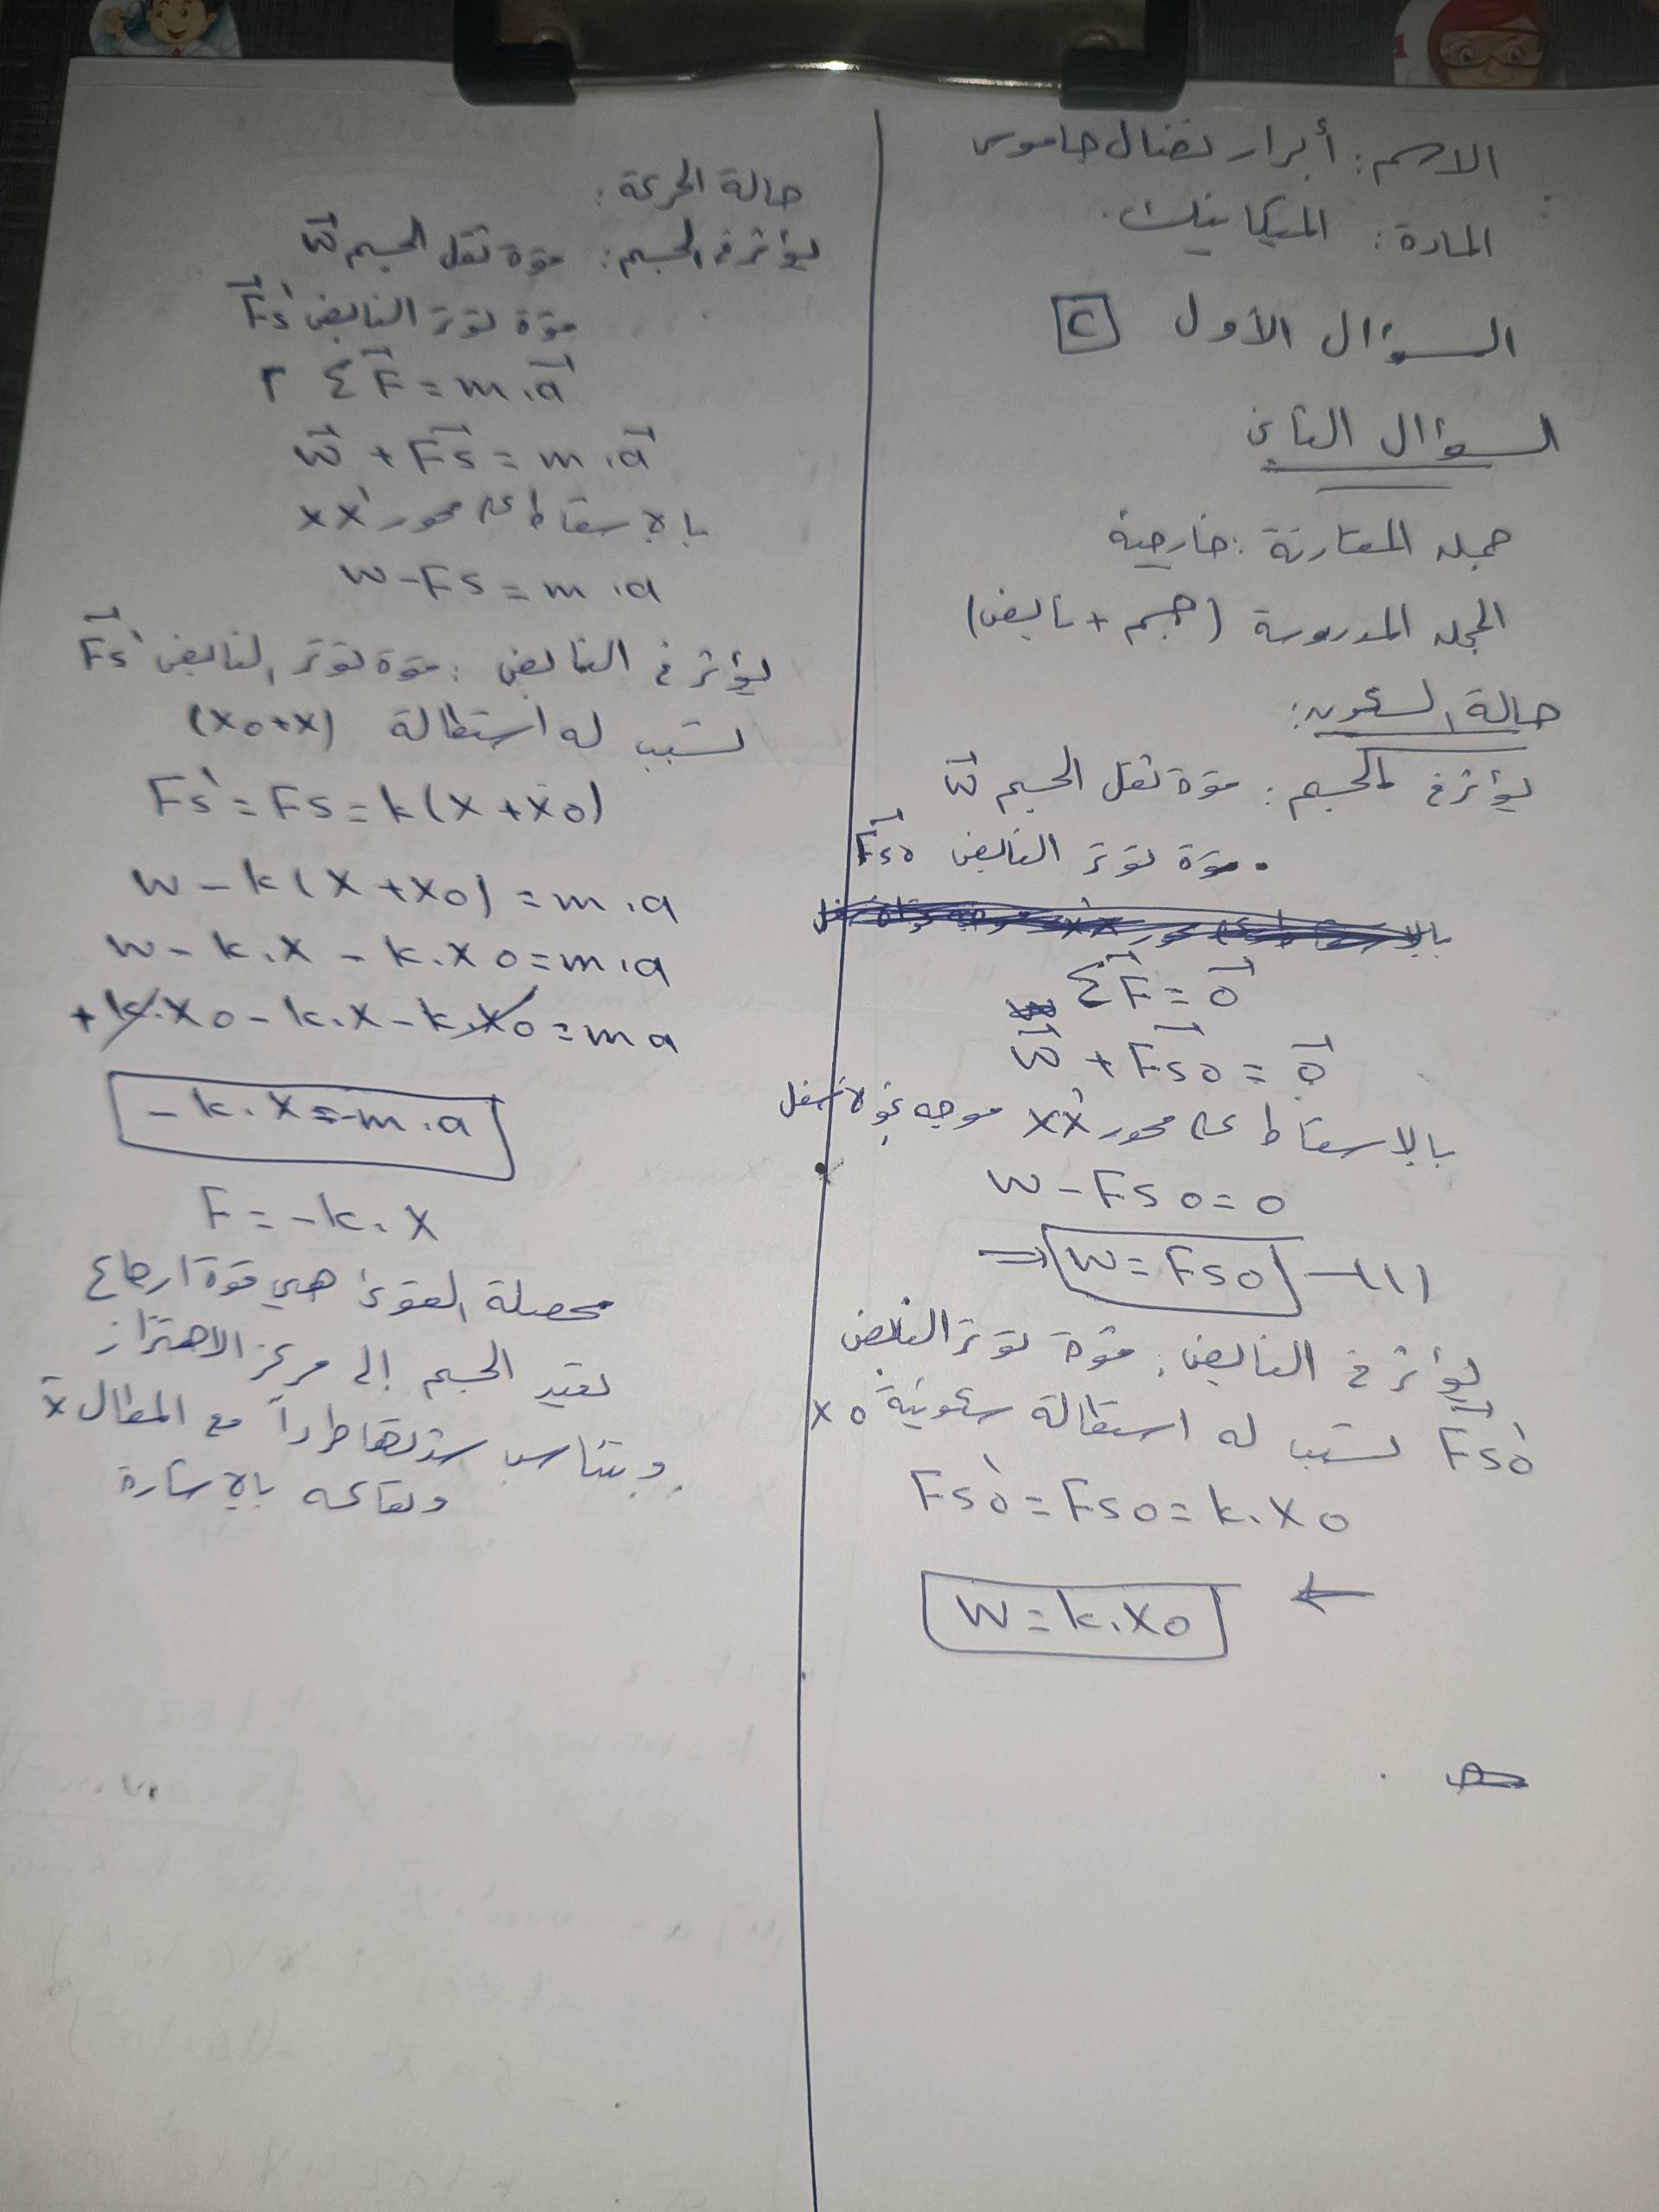 الاسم: أبرار نضال جاموس
المادة: الميكانيك.
السؤال الأول C
السؤال الثاني
جملة المقارنة: خارجية
الجملة المدروسة (جسم + نابض)
حالة السكون:
يؤثر في الجسم: قوة ثقل الجسم W⃗
• قوة توتر النابض F⃗s0
ΣF⃗ = 0⃗
W⃗ + F⃗s0 = 0⃗
بالاسقاط على محور xx' موجه نحو لأسفل
W - Fs0 = 0
⇒ W = Fs0 —(1)
يؤثر في النابض: قوة توتر النابض
F⃗s0' تسبب له استطالة سكونية x0
Fs0' = Fs0 = k.x0
← W = k.x0
حالة الحركة:
يؤثر في الجسم: قوة ثقل الجسم W⃗
قوة توتر النابض F⃗s'
ΣF⃗ = m.a⃗
W⃗ + F⃗s = m.a⃗
بالاسقاط على محور xx'
W - Fs = m.a
يؤثر في النابض: قوة توتر النابض F⃗s'
تسبب له استطالة (x0+x)
Fs' = Fs = k(x + x0)
W - k(x + x0) = m.a
W - k.x - k.x0 = m.a
+k.x0 - k.x - k.x0 = ma
-k.x = m.a
F = -k.x
محصلة القوى هي قوة ارجاع
تعيد الجسم إلى مركز الاهتزاز
وتتناسب شدتها طرداً مع المطال x̄
وتعاكسه بالإشارة